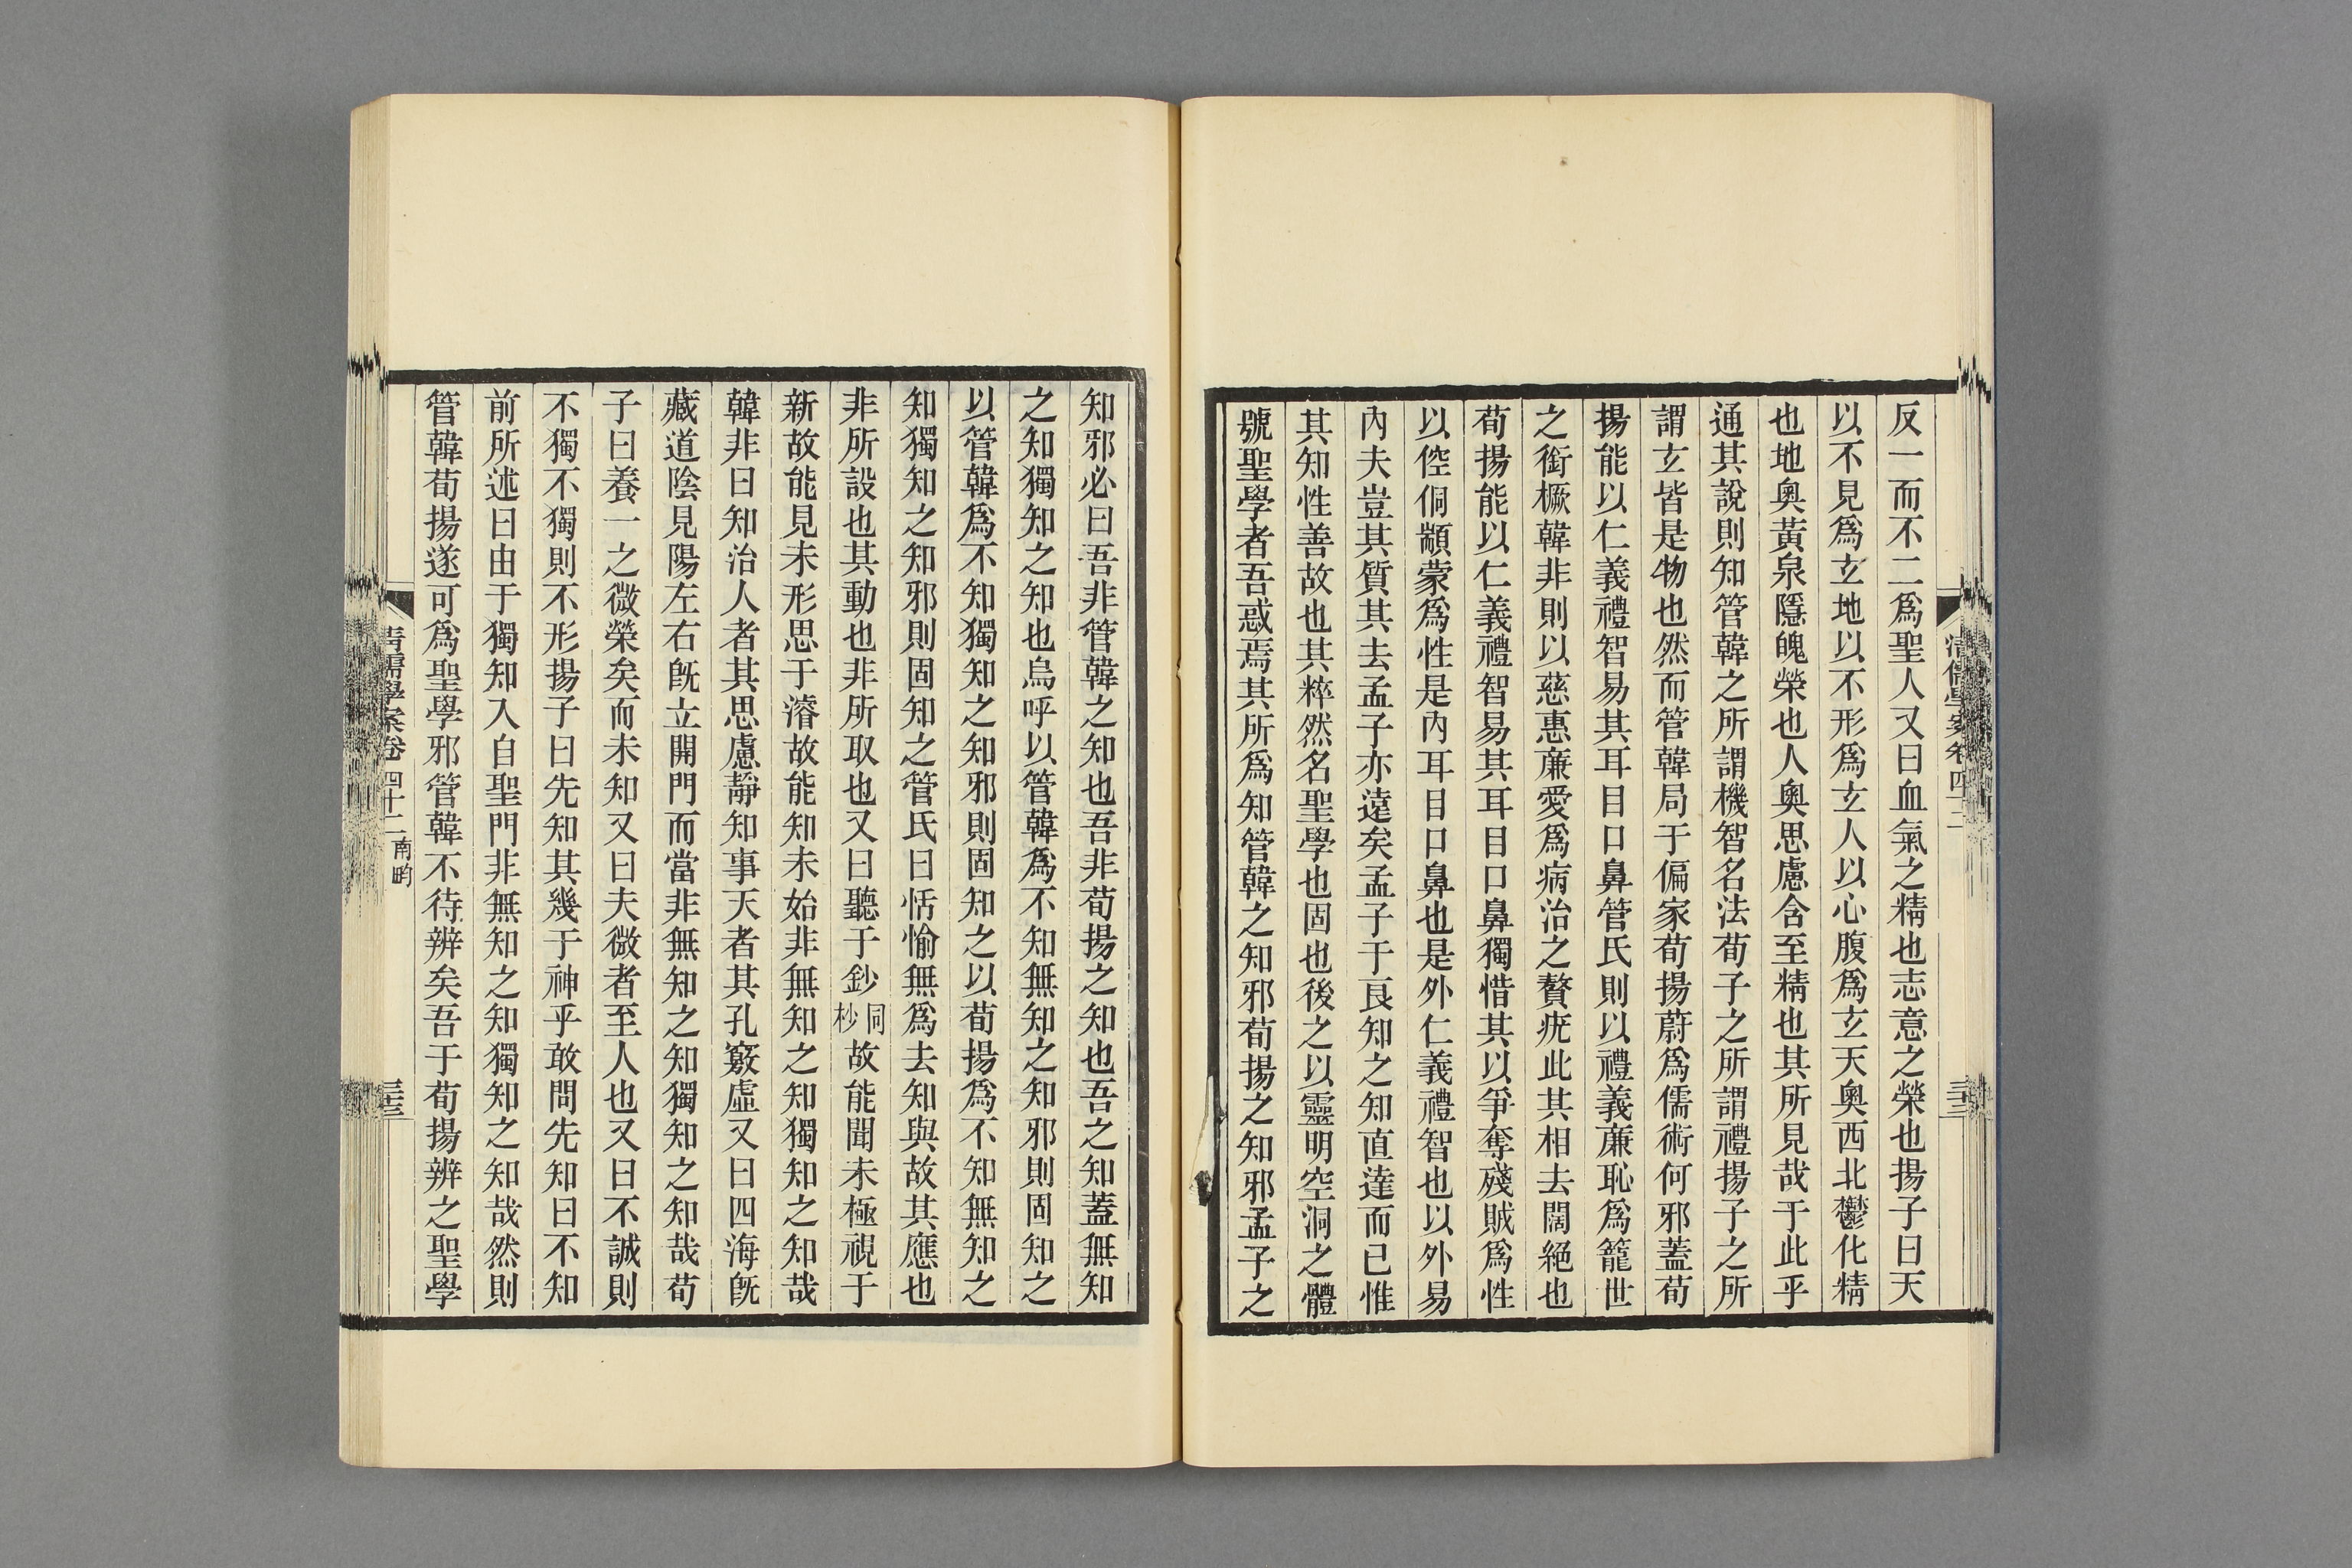 反一而不二爲聖人又曰血氣之精也志意之榮也揚子曰天
以不見爲玄地以不形爲玄人以心腹爲玄天奧西北鬱化精
也地奧黃泉隱魄榮也人奧思慮含至精也其所見哉于此乎
通其說則知管韓之所謂機智名法荀子之所謂禮揚子之所
謂玄皆是物也然而管韓局于偏家荀揚蔚爲儒術何邪蓋荀
揚能以仁義禮智易其耳目口鼻管氏則以禮義廉恥爲籠世
之銜橛韓非則以慈惠廉愛爲病治之贅疣此其相去闊絕也
荀揚能以仁義禮智易其耳目口鼻獨惜其以爭奪殘賊爲性
以倥侗顓蒙爲性是內耳目口鼻也是外仁義禮智也以外易
內夫豈其質其去孟子亦遠矣孟子于良知之知直達而已惟
其知性善故也其粹然名聖學也固也後之以靈明空洞之體
號聖學者吾惑焉其所爲知管韓之知邪荀揚之知邪孟子之
知邪必曰吾非管韓之知也吾非荀揚之知也吾之知蓋無知
之知獨知之知也烏呼以管韓爲不知無知之知邪則固知之
以管韓爲不知獨知之知邪則固知之以荀揚爲不知無知之
知獨知之知邪則固知之管氏曰恬愉無爲去知與故其應也
非所設也其動也非所取也又曰聽于鈔同杪故能聞未極視于
新故能見未形思于濬故能知未始非無知之知獨知之知哉
韓非曰知治人者其思慮靜知事天者其孔竅虛又曰四海旣
藏道陰見陽左右旣立開門而當非無知之知獨知之知哉荀
子曰養一之微榮矣而未知又曰夫微者至人也又曰不誠則
不獨不獨則不形揚子曰先知其幾于神乎敢問先知曰不知
前所述曰由于獨知入自聖門非無知之知獨知之知哉然則
管韓荀揚遂可爲聖學邪管韓不待辨矣吾于荀揚辨之聖學
清儒學案卷四十二 南畇
三十三